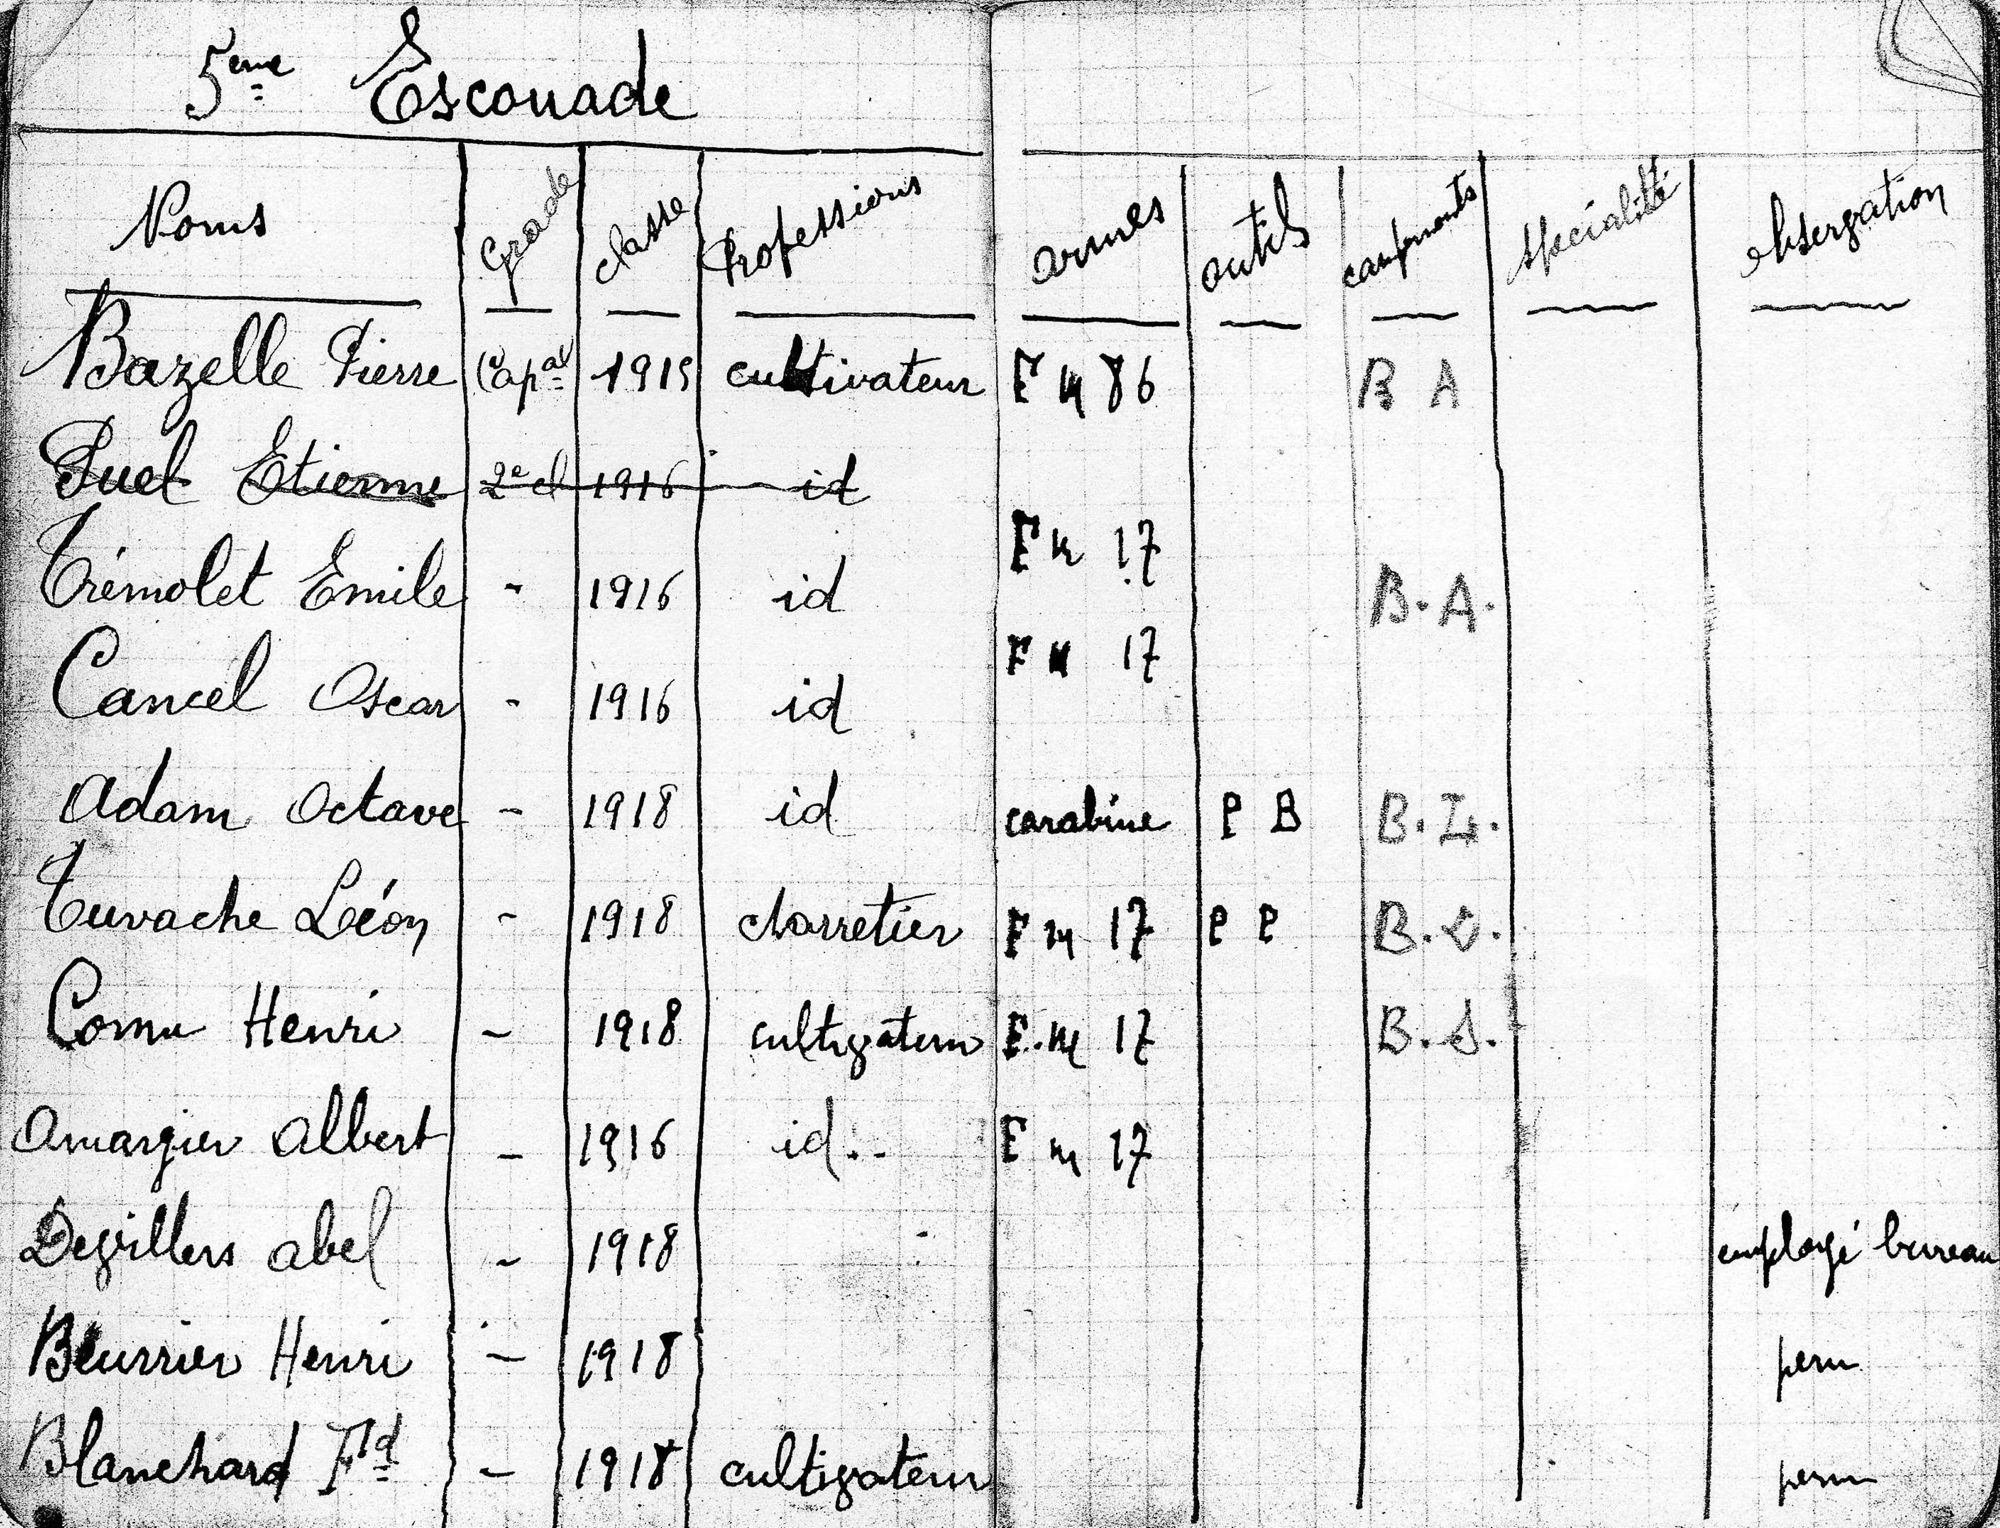 5eme Escouade
Noms Grade classe Professions armes outils campements spécialité observation
Bazelle Pierre Capal 1915 cultivateur F m 86 B A
Puel Etienne 2e cl 1916 id
F m 17
Trémolet Emile - 1916 id B.A.
F m 17
Cancel Oscar - 1916 id
Adam Octave - 1918 id carabine P B B.I.
Tuvache Léon - 1918 charretier F m 17 P P B.
Cornu Henri - 1918 cultivateur F.m 17 B.S.
Amargier Albert - 1916 id..
F m 17
Devillers Abel - 1918 employé bureau
Beurrier Henri - 1918 perm
Blanchard Fd - 1918 cultivateur perm